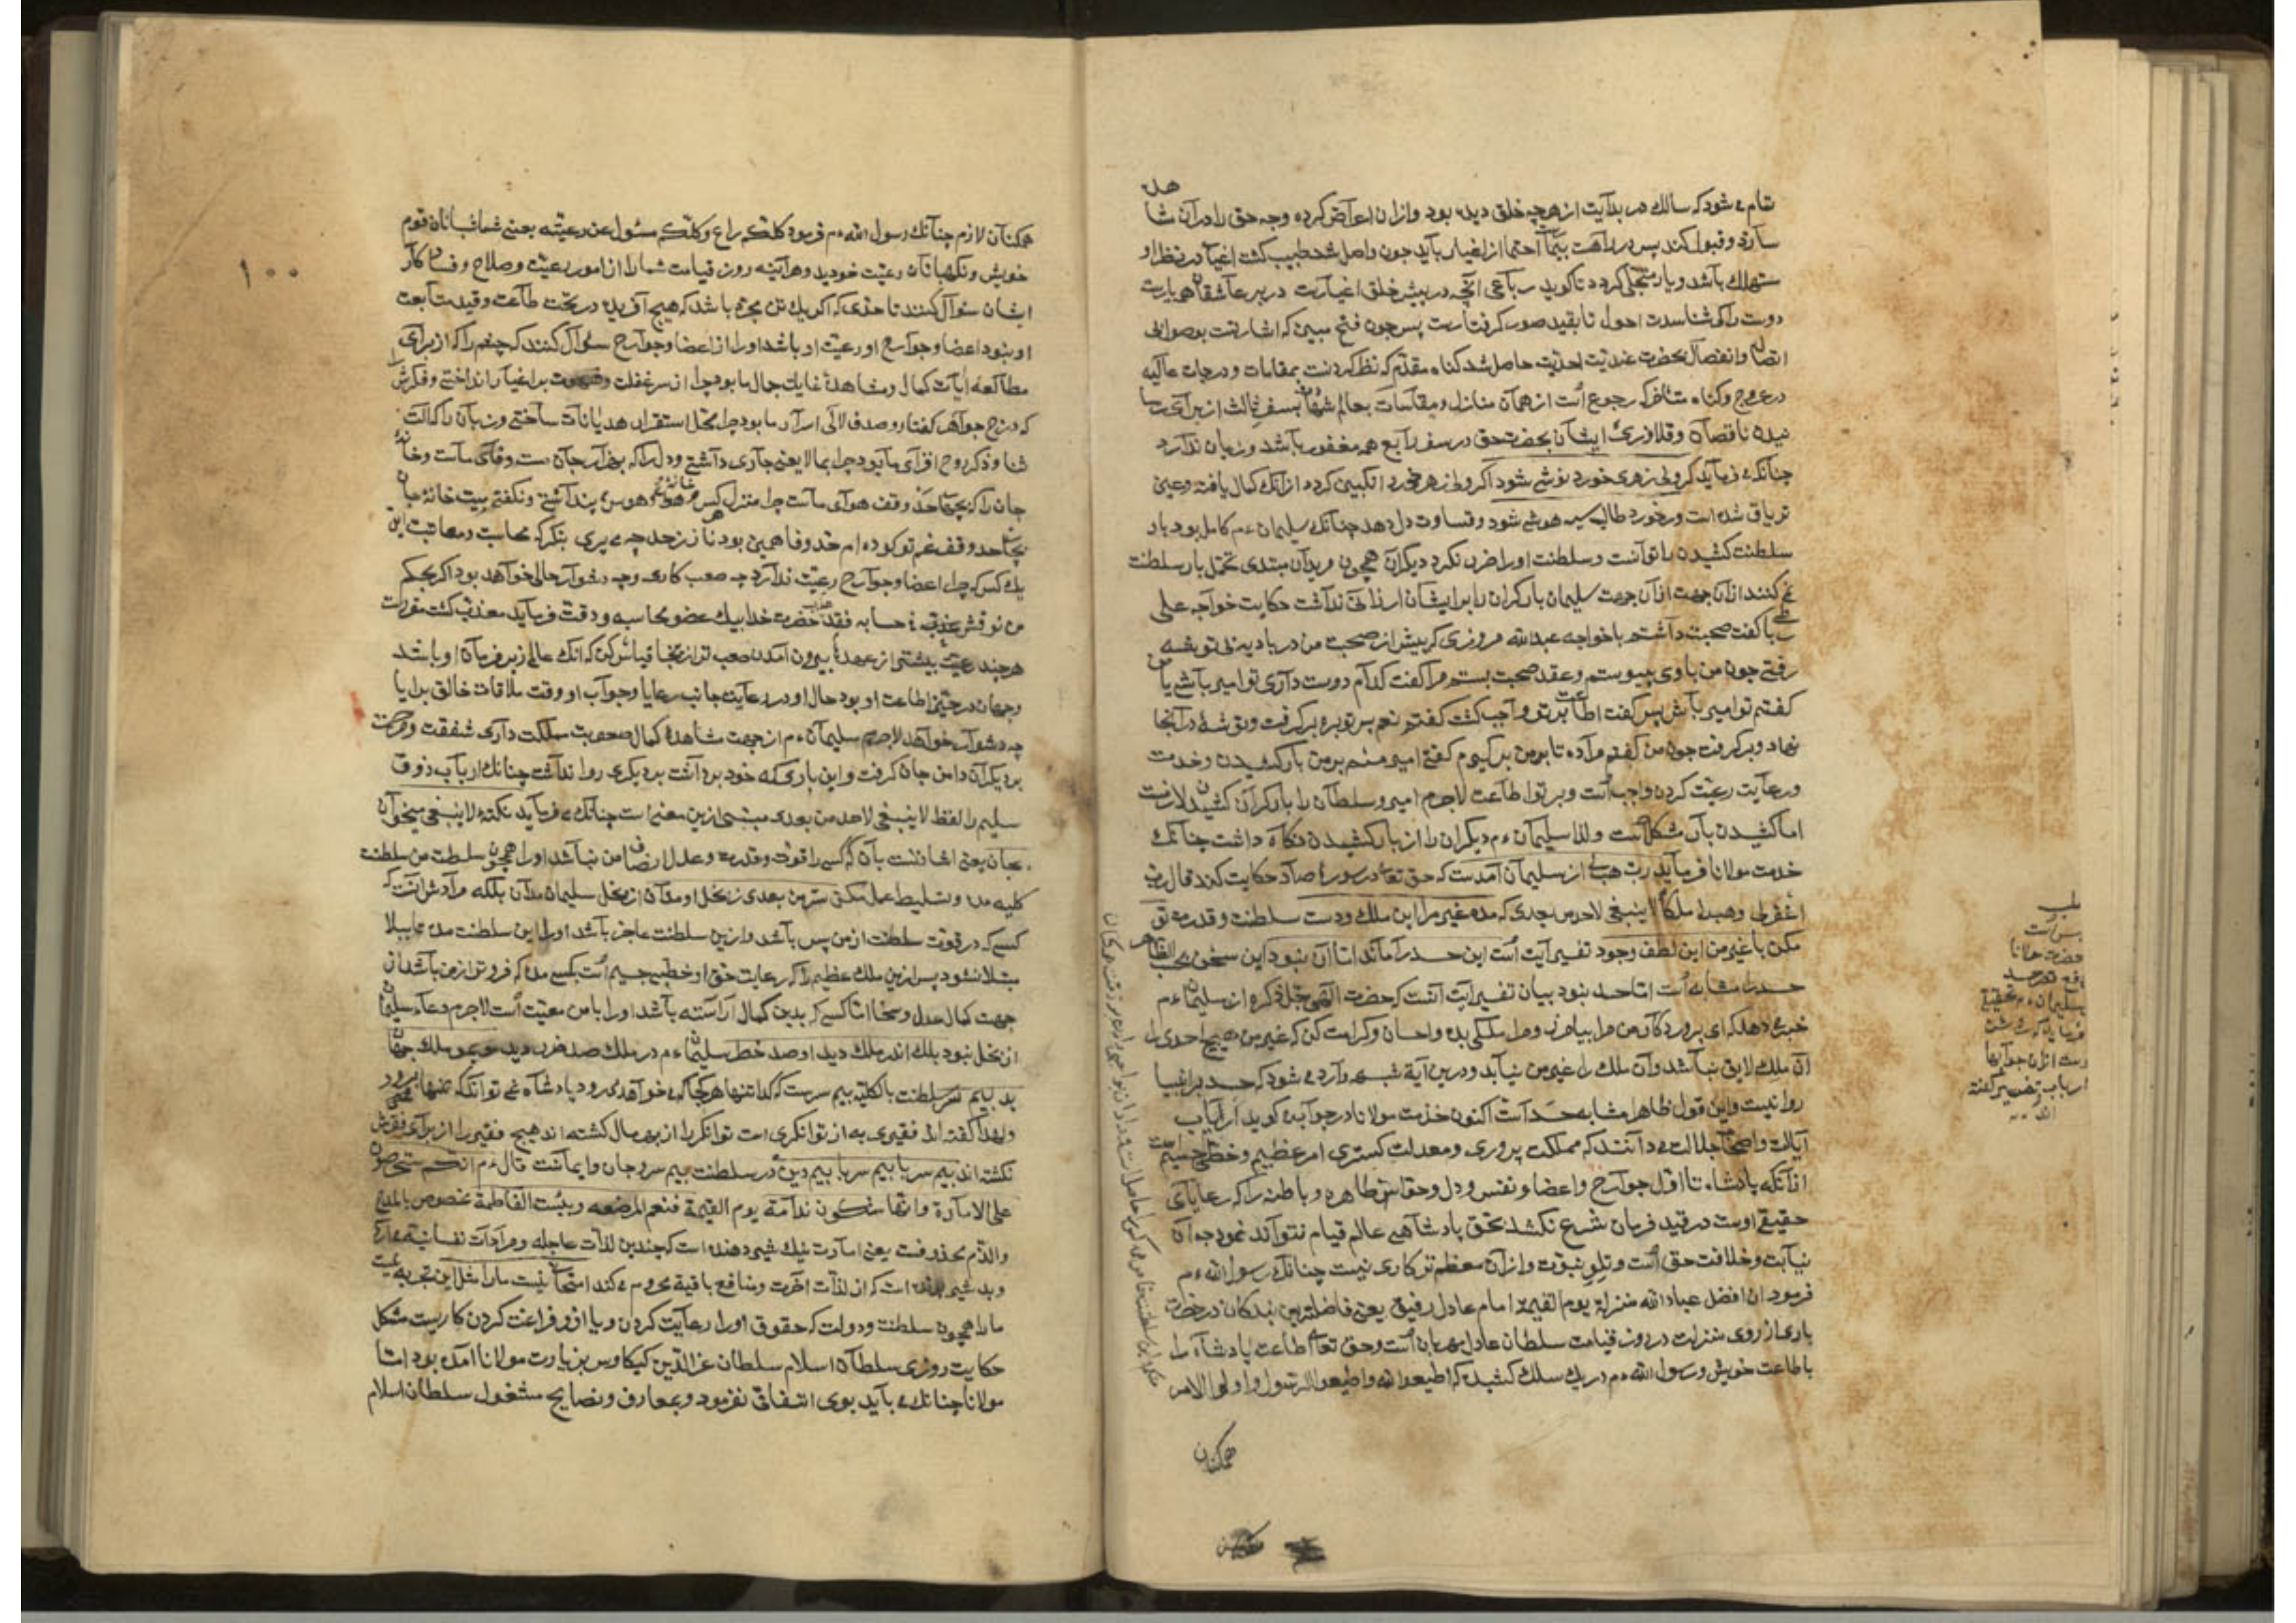 تمام می شود که سالک در بدایت از هرچه خلق دیده بود وازان اعراض کرده وجه حق را در آن مشا
هده
سازد وقبول کند پس در راهت احتما از اغیار باید جون واصل شد طبیب کشت اغیار در نظر او
مستهلک باشد ویار متجلی کردد تا کوید رباعی آنچه در پیش خلق اغیارست در بر عاشقان همه یارست
دوست را کو شناسدت احول تا بقید صور کرفتارست پس جون فتح مبین که اشارتست بوصوله
اتصال وانفصال بحضرت عندیت احدیت حاصل شد کناه مقدم که نظر کردنست بمقامات ودرجات عالیه
در عروج وکناه متاخر که رجوع است از همان منازل ومقامات بعالم شهادت بسفر ثالث از برای رسا
نیدن ناقصان وقلاوزی ایشان بحضرت حق در سفر رابع همه مغفور باشد وزیان ندارد
چنانک می فرماید کر ولی زهری خورد نوشی شود اکر ولی زهر خورد انکبین کردد ازانک کمال یافته وعین
تریاق شده است ور خورد طالب سیه هوشی شود وقساوت دل دهد چنانک سلیمان ءم کامل بود بار
سلطنت کشیدن توانست وسلطنت اورا ضرر نکرد دیکران همچون مریدان مبتدی تحمل بار سلطنت
نمی کنند ازان جهت ازان جهت سلیمان بار کران را بر ایشان ارزانی نداشت حکایت خواجه علی
رباطی کفت صحبت داشتم باخواجه عبدالله مروزی که پیش از صحبت من در بادیه بی توشه
رفتی جون من باوی پیوستم وعقد صحبت بستم مرا کفت کدام دوست داری تو امیر باشی یا من
کفتم تو امیر باش پس کفت اطاعت بر تو واجب کشت کفتم نعم پس توبره برکرفت وتوشه در آنجا
نهاد وبرکرفت جون من کفتم مرا ده تا بر من برکیرم کفتی امیر منم بر من بار کشیدن وخدمت
ورعایت رعیت کردن واجب است وبر تو اطاعت لاجرم امیر وسلطان را بار کران کشیدن لازمست
اما کشیدن بار مشکلست ولذا سلیمان ءم دیکران را از بار کشیدن نکاه داشت چنانک
خدمت مولانا فرماید رب هب لی از سلیمان آمدست که حق تعالی در سوره صاد حکایت کند قال رب
اغفر لی وهب لی ملکا لا ینبغی لاحد من بعدی که مده غیر مرا این ملک ودست سلطنت وقدرت تو
مکن با غیر من این لطف وجود تفسیر آیت است این حسد را ماند اما آن نبود این سخن بحسب الظاهر
حسد را مشابه است اما حسد نبود بیان تفسیر آیت آنست که حضرت الهی جل ذکره از سلیمان ءم
خبر می دهد که ای پروردکار من مرا بیامرز ومرا ملکی بده واحسان وکرامت کن که غیر من هیچ احدی را
آن ملک لایق نباشد وآن ملک را غیر من نیابد ودرین آیة شبهه وارد می شود که حسد بر انبیا
روا نیست واین قول ظاهرا مشابه حسد است اکنون خدمت مولانا در جوابش کوید ارباب
ایالت واصحاب جلالت می دانند که مملکت پروری ومعدلت کستری امر عظیم وخطر جسیم است
ازآنکه پادشاه تا اول جوارح واعضا ونفس ودل وحواس ظاهره وباطنه را که رعایای
حقیقی اوست در قید فرمان شرع نکشد بحق پادشاهی عالم قیام نتواند نمود جه آن
نیابت وخلافت حق است وتلو نبوت وازان معظم تر کاری نیست چنانک رسول الله ءم
فرمود ان افضل عباد الله منزلة یوم القیمة امام عادل رفیق یعنی فاضلترین بندکان در حضرت
باری از روی منزلت در روز قیامت سلطان عادل مهربان است وحق تعالی اطاعت پادشاه را
باطاعت خویش ورسول الله ءم در یک سلک کشیده که اطیعوا الله واطیعوا الرسول واولوا الامر
همکنان
حضرت مولانا
دفع حسد
سلیمان ءم تحقیقی
ارباب تفسیر کفته
اند
١٠٠
همکنان لازم چنانک رسول الله ءم فرمود کلکم راع وکلکم مسئول عن رعیته یعنی شما شبانان قوم
خویش ونکهبانان رعیت خودید وهرآینه روز قیامت شما را از امور رعیت وصلاح وفساد کار
ایشان سؤال کنند تا حدی که اکر یک تن مجرد باشد که هیچ آفریده در تحت طاعت وقید متابعت
او نبود اعضا وجوارح او رعیت او باشد اورا از اعضا وجوارح سؤال کنند که چشم را که از برای
مطالعه آیات کمال ومشاهده غایات جمال ما بود چرا از سر غفلت وشهوت بر اغیار انداختی وفکرش را
که درج جواهر کفتار وصدف لآلی اسرار ما بود چرا محل استقرار هذیانات ساختی وزبان را که آلت
ثنا وذکر روح افزای ما بود چرا بما لایعنی جاری داشتی ودل را که وفای ماست وخانه
جان را که بحق احد وقف هوای ماست چرا منزل کبر وهوا وهوس پنداشتی ونکفتی بیت خانه جان
بجناب احد وقف غم تو کرده ام حد وفا همین بود ناز ز حد چه می بری بنکر که محاسبت ومعاتبت این
یک کس که جز اعضا وجوارح رعیت ندارد چه صعب کاری وچه دشوار حالی خواهد بود اکر بحکم
من نوقش فی حسابه فقد عذب حضرت خدا بیک عضو محاسبه ودقت فرماید معذب کشت مقررست
هرچند رعیت بیشتر از عهده بیرون آمدن صعب تر ازینجا قیاس کن که آنک عالم زیر فرمان او باشد
وجهان در حیز اطاعت او بود حال او در رعایت جانب رعایا وجواب او وقت ملاقات خالق برایا
چه دشوار خواهد لاجرم سلیمان ءم از جهت مشاهده کمال صعوبت مملکت داری شفقت ومرحمت
بر دیکران دامن جان کرفت واین باری که خود برداشت بر دیکری روا نداشت چنانک ارباب ذوق
سلیم را لفظ لا ینبغی لاحد من بعدی مبتنی ازین معنی است چنانک می فرماید نکته لا ینبغی میخوان
بجان یعنی اشارتست بآن که کسی را قوت وقدرت وعدل وانصاف من نباشد اورا همچون سلطنت من سلطنت
کلیه مده وتسلیط عمل مکن سر من بعدی ز بخل او مدان از بخل سلیمان مدان بلکه مرادش آنست که
کسی که در قوت سلطنت از من پس باشد وازین سلطنت عاجز باشد اورا این سلطنت مده تا ببلا
مبتلا نشود پس ازین ملک عظیم را که رعایت حق او خطبی جسیم است بکسی مده که فروتر از من باشد از
جهت کمال عدل وسخا اما کسی که بدین کمال آراسته باشد اورا با من معیت است لاجرم دعاء سلیمان
از بخل نبود بلک اندر ملک دید او صد خطر سلیمان ءم در ملک صد ضرر دید مو بمو ملک جهان
بد بیم سر سلطنت بالکلیه بیم سرست که کدا تنها هر کجا که می خواهد می رود پادشاه نمی تواند که تنها برود
ولهذا کفته اند فقیری به از توانکری است توانکر را از بهر مال کشته اند هیچ فقیری را از برای فقرش
نکشته اند بیم سر با بیم سر با بیم دین در سلطنت بیم سر وجان وایمانست قال ءم انکم ستحرصون
علی الامارة وانها ستکون ندامة یوم القیمة فنعم المرضعه وبئست الفاطمة مخصوص بالمدح
والذم محذوفست یعنی امارت نیک شیر دهنده است که چندین لذات عاجله ومرادات نفسانیة دارد
وبد شیر است که از لذات آخرت ومنافع باقیة محروم می کند امتحانی نیست ما را مثل این تجربه نیست
ما را همچون سلطنت ودولت که حقوق اورا رعایت کردن ویا ازو فراغت کردن کاریست مشکل
حکایت روزی سلطان اسلام سلطان عزالدین کیکاوس بزیارت مولانا آمده بود اما
مولانا چنانک می باید بوی التفاتی نفرمود وبمعارف ونصایح مشغول سلطان اسلام